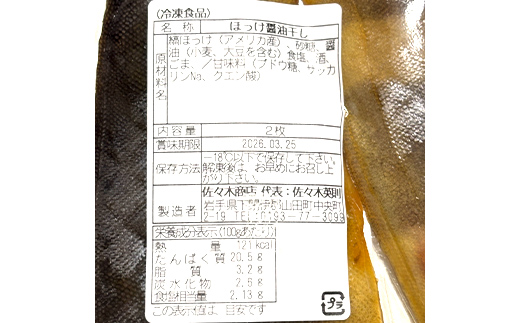 (冷凍食品)
名称 ほっけ醤油干し
原材料名 縞ほっけ(アメリカ産)、砂糖、醤
油(小麦、大豆を含む)食塩、酒、
ごま、/甘味料(ブドウ糖、サッカ
リンNa、クエン酸)
内容量 2枚
賞味期限 2026.03.25
保存方法 -18℃以下で保存して下さい。
解凍後は、お早めにお召し上
がり下さい。
製造者 佐々木商店 代表:佐々木英則
岩手県下閉伊郡山田町中央町
2-19 TEL:0193-77-3099
栄養成分表示(100gあたり)
熱量 121kcal
たんぱく質 20.5g
脂質 3.2g
炭水化物 2.6g
食塩相当量 2.13g
この表示値は、目安です
プラ